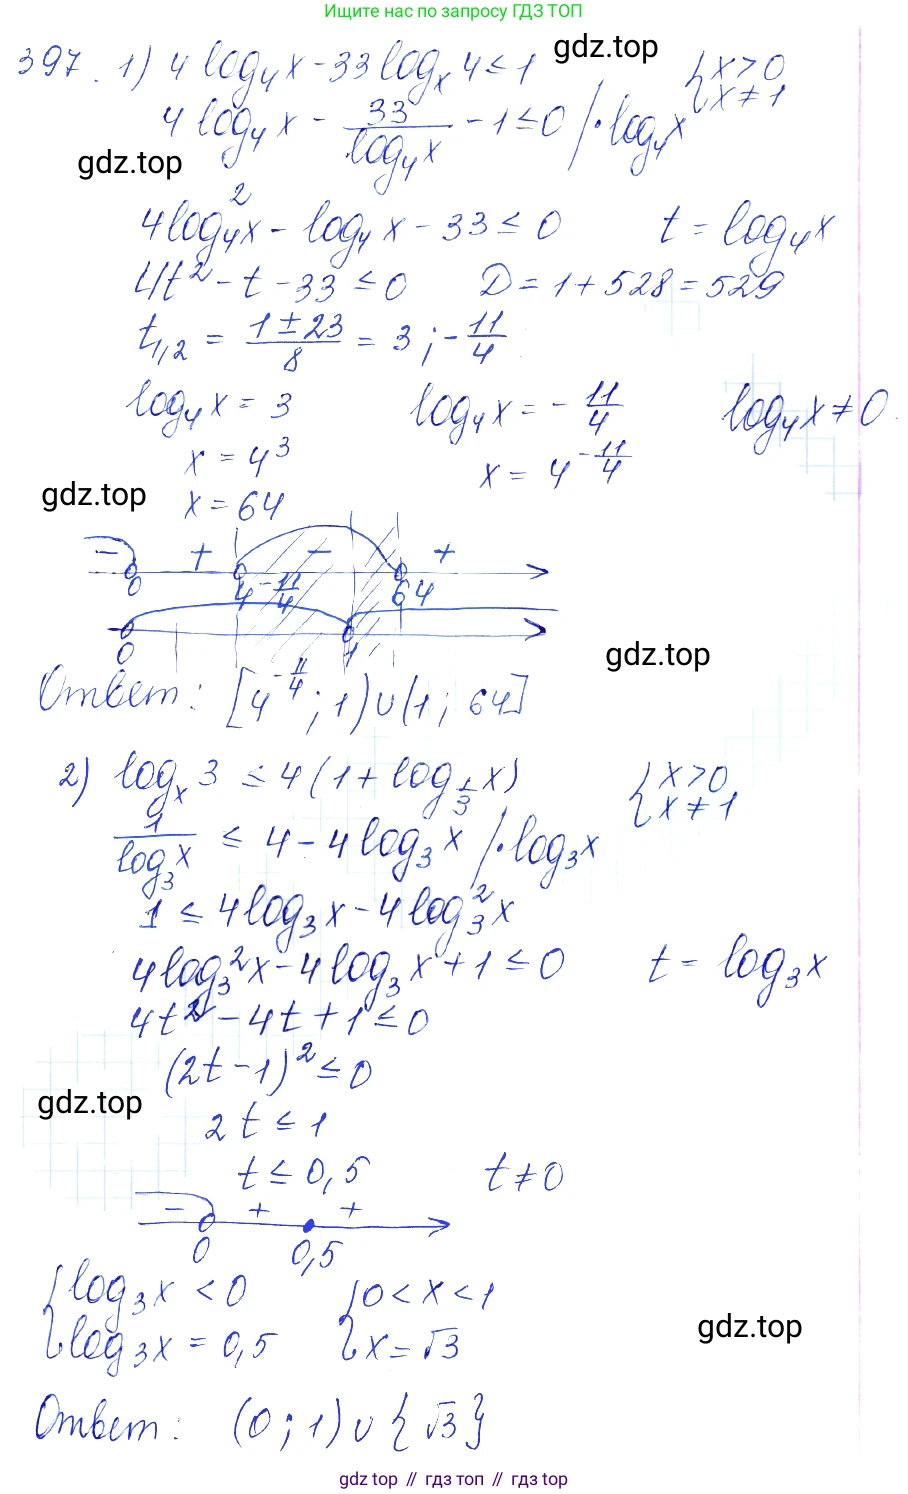 Ищите нас по запросу ГДЗ ТОП
397. 1) 4 log₄x - 33 logₓ 4 ≤ 1 { x > 0
gdz.top
{ x ≠ 1
4 log₄ x - 33/log₄x - 1 ≤ 0 / · log₄x
gdz.top
4log₄²x - log₄ x - 33 ≤ 0 t = log₄x
4t² - t - 33 ≤ 0 D = 1 + 528 = 529
t₁,₂ = (1 ± 23)/8 = 3 ; -11/4
log₄x = 3 log₄x = -11/4 log₄x ≠ 0
x = 4³ x = 4^(-11/4)
gdz.top
x = 64
- + - +
0 4^(-11/4) 64
0 1
gdz.top
Ответ: [4^(-11/4); 1) ∪ (1; 64]
2) logₓ 3 ≤ 4 (1 + log_(1/3) x) { x > 0
{ x ≠ 1
1/log₃x ≤ 4 - 4 log₃ x / · log₃x
1 ≤ 4 log₃x - 4 log₃²x
4 log₃²x - 4 log₃ x + 1 ≤ 0 t = log₃x
4t² - 4t + 1 ≤ 0
(2t - 1)² ≤ 0
gdz.top
2t ≤ 1
t ≤ 0,5 t ≠ 0
- + +
0 0,5
{ log₃x < 0 { 0 < x < 1
{ log₃x = 0,5 { x = √3
gdz.top
Ответ: (0; 1) ∪ {√3}
gdz top // гдз топ // гдз top